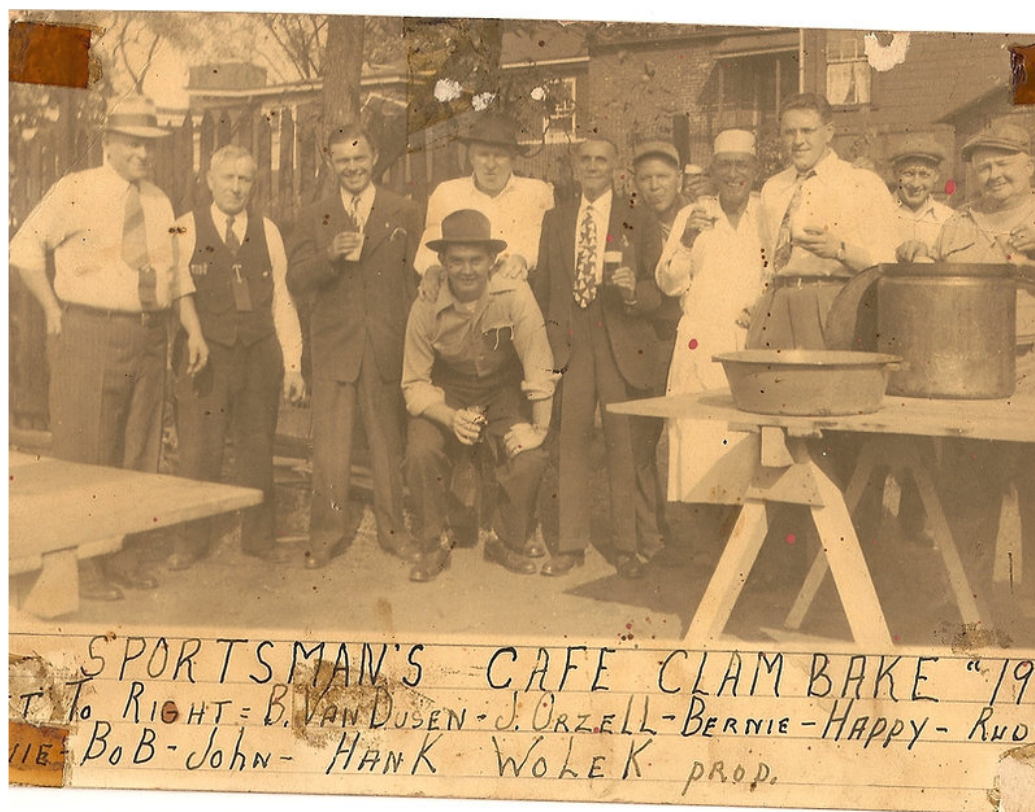 SPORTSMAN'S CAFE CLAM BAKE "19
T TO RIGHT = B. VAN DUSEN - J. ORZELL - BERNIE - HAPPY - RUD
IE - BOB - John - HANK WOLEK PROP.